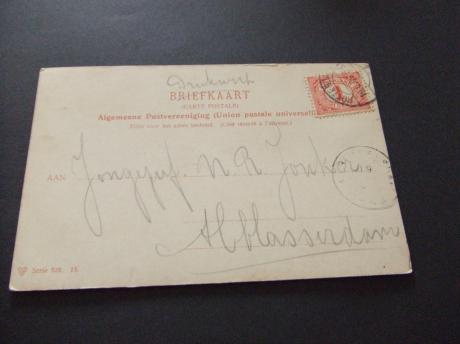 Drukwerk
BRIEFKAART
(CARTE POSTALE)
Algemeene Postvereeniging (Union postale universelle)
Zijde voor het adres bestemd. (Côté réservé à l'adresse.)
AAN Jongejuf. N. R. Jonker
Alblasserdam
Serie 528. 15.